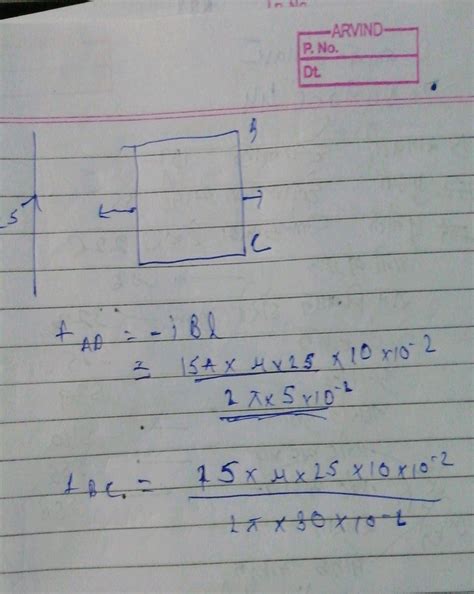 ARVIND
P. No.
Dt.
B
25
C
F AD = -i B l
= 15A × μ × 25 × 10 × 10⁻²
2π × 5 × 10⁻²
F BC = 15 × μ × 25 × 10 × 10⁻²
2π × 30 × 10⁻²